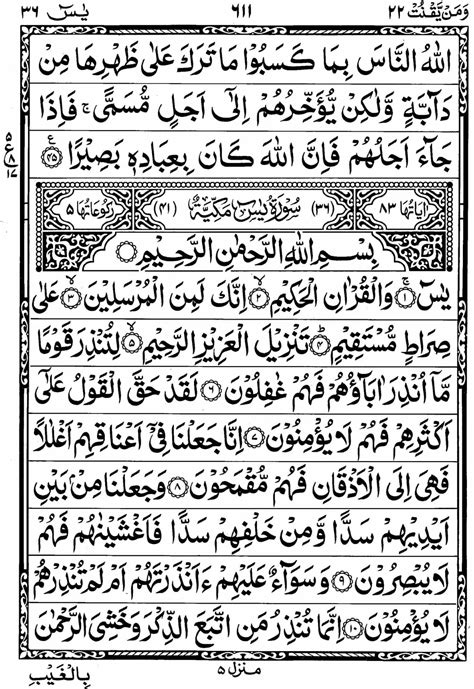 وَمَنْ يَّقْنُتْ ٢٢ ٦١١ يٰسٓ ٣٦
اللّٰهُ النَّاسَ بِمَا كَسَبُوْا مَا تَرَكَ عَلٰى ظَهْرِهَا مِنْ
دَآبَّةٍ وَّلٰكِنْ يُّؤَخِّرُهُمْ اِلٰٓى اَجَلٍ مُّسَمًّى ۚ فَاِذَا
جَآءَ اَجَلُهُمْ فَاِنَّ اللّٰهَ كَانَ بِعِبَادِهٖ بَصِيْرًا ﴿٤٥﴾
٥ ع ٨ ١٧
اٰيَاتُهَا ٨٣ (٣٦) سُوْرَةُ يٰسٓ مَكِّيَّةٌ (٤١) رُكُوْعَاتُهَا ٥
بِسْمِ اللّٰهِ الرَّحْمٰنِ الرَّحِيْمِ
يٰسٓ ﴿١﴾ وَالْقُرْاٰنِ الْحَكِيْمِ ﴿٢﴾ اِنَّكَ لَمِنَ الْمُرْسَلِيْنَ ﴿٣﴾ عَلٰى
صِرَاطٍ مُّسْتَقِيْمٍ ﴿٤﴾ تَنْزِيْلَ الْعَزِيْزِ الرَّحِيْمِ ﴿٥﴾ لِتُنْذِرَ قَوْمًا
مَّآ اُنْذِرَ اٰبَآؤُهُمْ فَهُمْ غٰفِلُوْنَ ﴿٦﴾ لَقَدْ حَقَّ الْقَوْلُ عَلٰٓى
اَكْثَرِهِمْ فَهُمْ لَا يُؤْمِنُوْنَ ﴿٧﴾ اِنَّا جَعَلْنَا فِيْٓ اَعْنَاقِهِمْ اَغْلٰلًا
فَهِيَ اِلَى الْاَذْقَانِ فَهُمْ مُّقْمَحُوْنَ ﴿٨﴾ وَجَعَلْنَا مِنْۢ بَيْنِ
اَيْدِيْهِمْ سَدًّا وَّمِنْ خَلْفِهِمْ سَدًّا فَاَغْشَيْنٰهُمْ فَهُمْ
لَا يُبْصِرُوْنَ ﴿٩﴾ وَسَوَآءٌ عَلَيْهِمْ ءَاَنْذَرْتَهُمْ اَمْ لَمْ تُنْذِرْهُمْ
لَا يُؤْمِنُوْنَ ﴿١٠﴾ اِنَّمَا تُنْذِرُ مَنِ اتَّبَعَ الذِّكْرَ وَخَشِيَ الرَّحْمٰنَ
منزل ٥
بِالْغَيْبِ